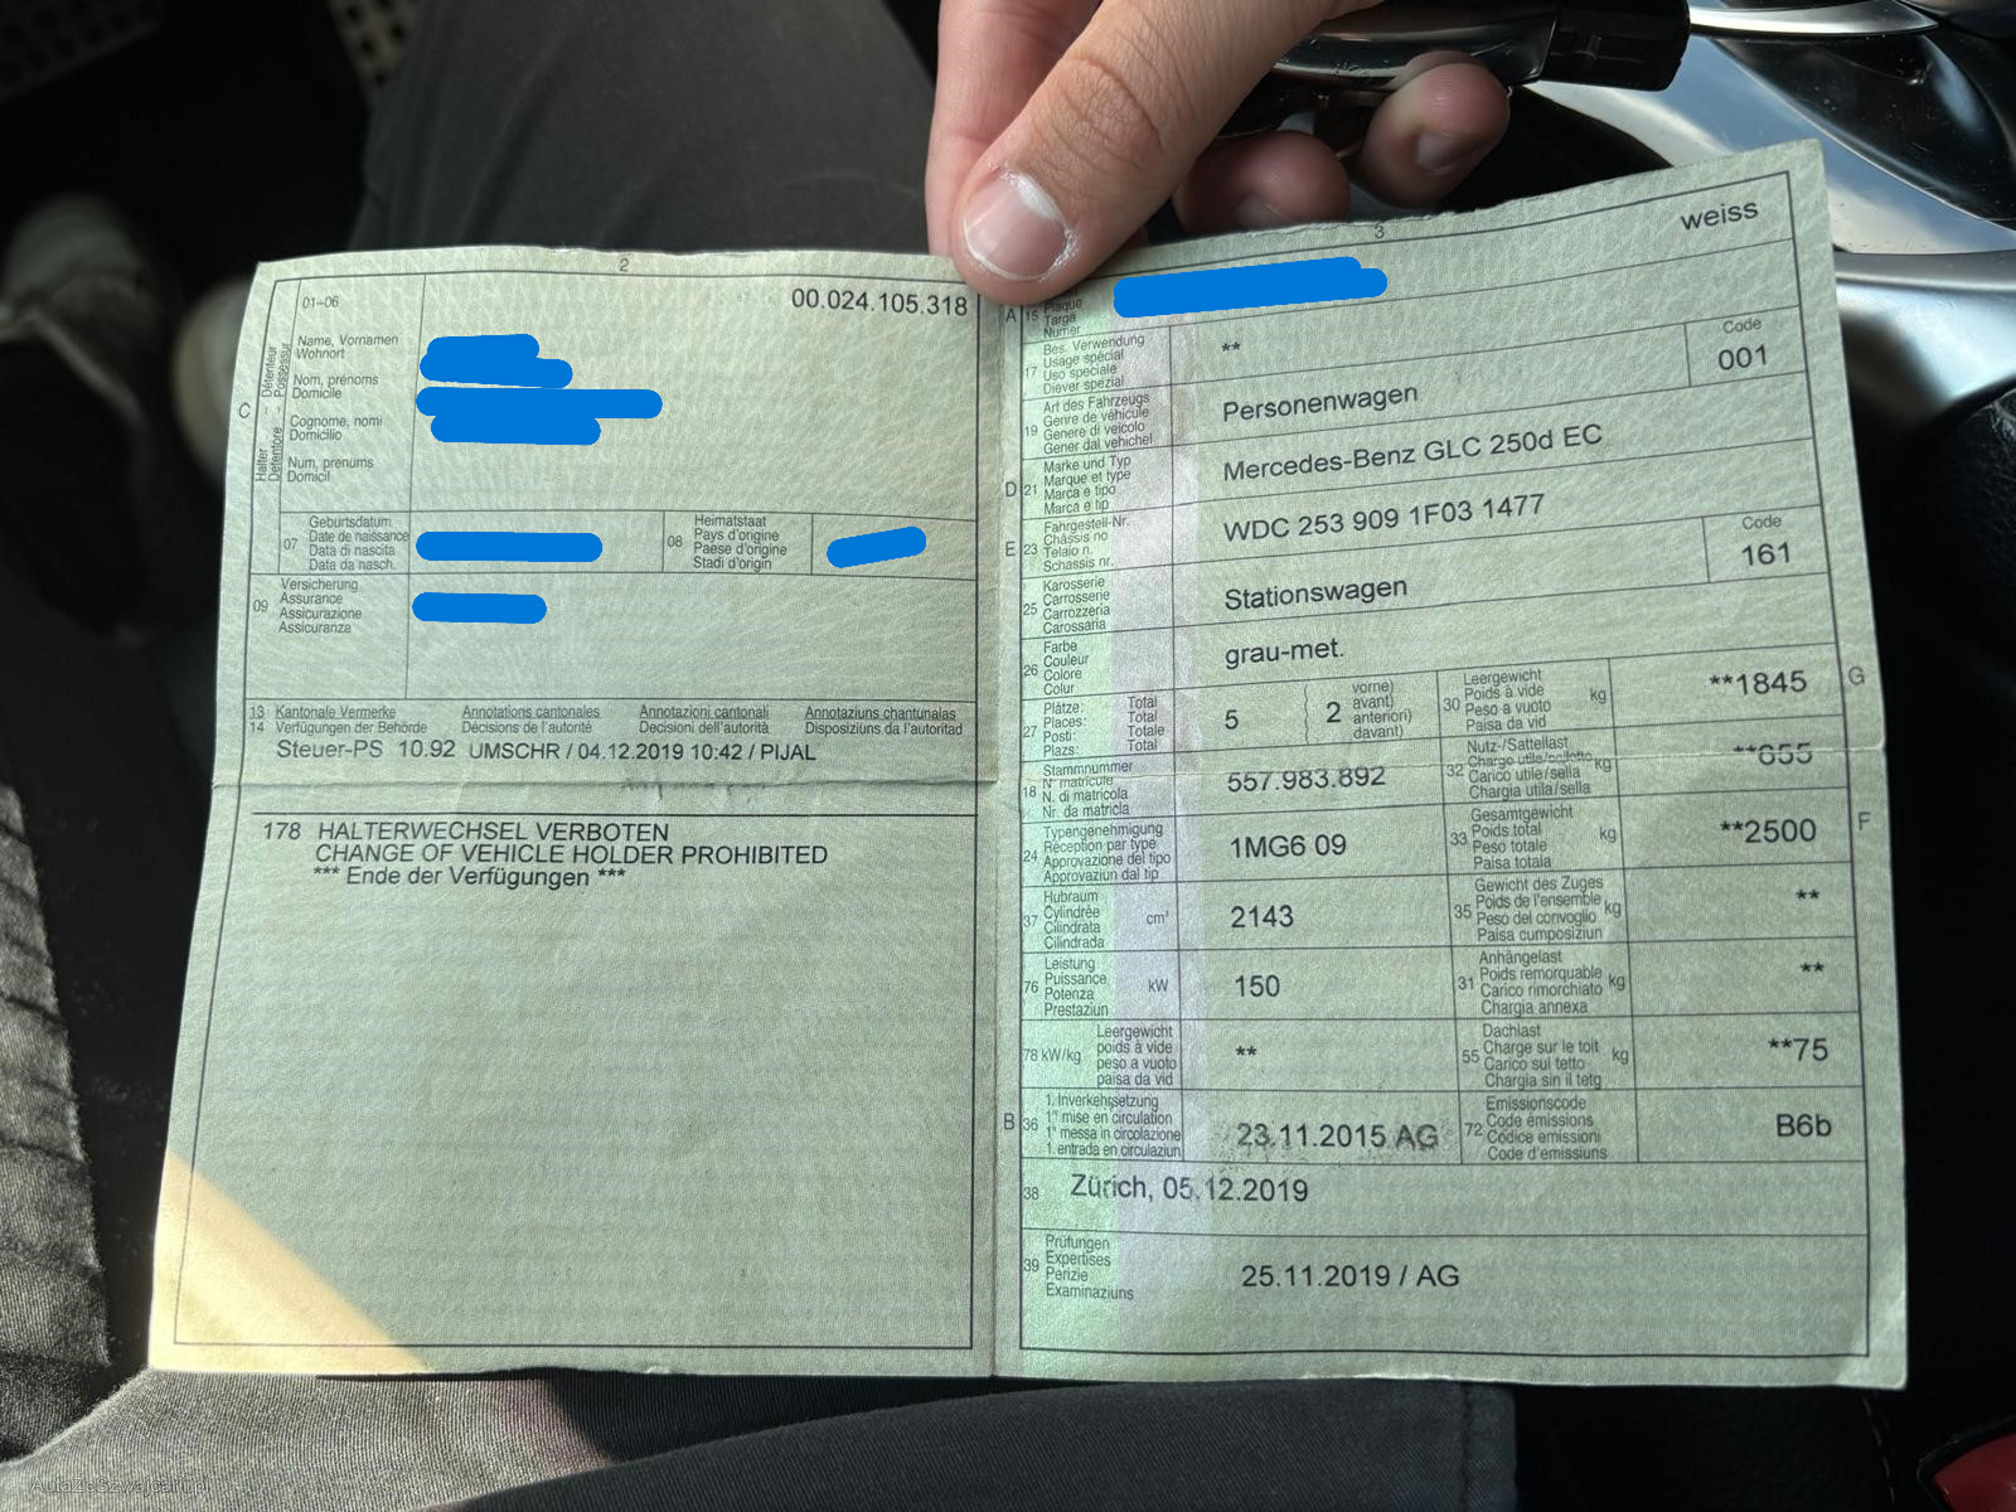 2
01–06
00.024.105.318
C
Halter – Détenteur
Detentore – Possessur
Name, Vornamen
Wohnort
Nom, prénoms
Domicile
Cognome, nomi
Domicilio
Num, prenums
Domicil
07
Geburtsdatum
Date de naissance
Data di nascita
Data da nasch.
08
Heimatstaat
Pays d'origine
Paese d'origine
Stadi d'origin
09
Versicherung
Assurance
Assicurazione
Assicuranza
13 Kantonale Vermerke Annotations cantonales Annotazioni cantonali Annotaziuns chantunalas
14 Verfügungen der Behörde Décisions de l'autorité Decisioni dell'autorità Disposiziuns da l'autoritad
Steuer-PS 10.92 UMSCHR / 04.12.2019 10:42 / PIJAL
178 HALTERWECHSEL VERBOTEN
CHANGE OF VEHICLE HOLDER PROHIBITED
*** Ende der Verfügungen ***
3
weiss
A 15
Plaque
Targa
Numer
17
Bes. Verwendung
Usage spécial
Uso speciale
Diever spezial
**
19
Art des Fahrzeugs
Genre de véhicule
Genere di veicolo
Gener dal vehichel
Personenwagen
Code
001
D 21
Marke und Typ
Marque et type
Marca e tipo
Marca e tip
Mercedes-Benz GLC 250d EC
E 23
Fahrgestell-Nr.
Châssis no
Telaio n.
Schassis nr.
WDC 253 909 1F03 1477
25
Karosserie
Carrosserie
Carrozzeria
Carossaria
Stationswagen
Code
161
26
Farbe
Couleur
Colore
Colur
grau-met.
27
Plätze: Total
Places: Total
Posti: Totale
Plazs: Total
5
2
vorne)
avant)
anteriori)
davant)
30
Leergewicht
Poids à vide
Peso a vuoto
Paisa da vid
kg
**1845
G
18
Stammnummer
N° matricule
N. di matricola
Nr. da matricla
557.983.892
32
Nutz-/Sattellast
Charge utile/sellette
Carico utile/sella
Chargia utila/sella
kg
**655
24
Typengenehmigung
Réception par type
Approvazione del tipo
Approvaziun dal tip
1MG6 09
33
Gesamtgewicht
Poids total
Peso totale
Paisa totala
kg
**2500
F
37
Hubraum
Cylindrée
Cilindrata
Cilindrada
cm³
2143
35
Gewicht des Zuges
Poids de l'ensemble
Peso del convoglio
Paisa cumposiziun
kg
**
76
Leistung
Puissance
Potenza
Prestaziun
kW
150
31
Anhängelast
Poids remorquable
Carico rimorchiato
Chargia annexa
kg
**
78 kW/kg
Leergewicht
poids à vide
peso a vuoto
paisa da vid
**
55
Dachlast
Charge sur le toit
Carico sul tetto
Chargia sin il tetg
kg
**75
B 36
1. Inverkehrsetzung
1re mise en circulation
1a messa in circolazione
1. entrada en circulaziun
23.11.2015 AG
72
Emissionscode
Code émissions
Codice emissioni
Code d'emissiuns
B6b
38
Zürich, 05.12.2019
39
Prüfungen
Expertises
Perizie
Examinaziuns
25.11.2019 / AG
AutaZeSzwajcarii.pl